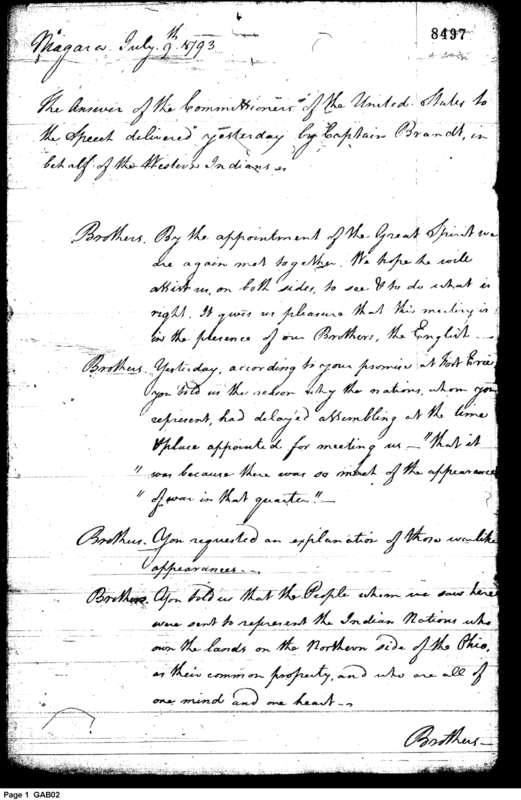 8497
Niagara July 9th 1793
The Answer of the Commissioners of the United States to
the Speech delivered yesterday by Captain Brandt, in
behalf of the Western Indians
Brothers. By the appointment of the Great Spirit we
are again met together. We hope he will
assist us, on both sides, to see & to do what is
right. It gives us pleasure that this meeting is
in the presence of our Brothers, the English
Brothers. Yesterday, according to your promise at Fort Erie
you told us the reason why the nations, whom you
represent, had delayed assembling at the time
& place appointed for meeting us — "that it
" was because there was so much of the appearance
" of war in that quarter." —
Brothers. You requested an explanation of those warlike
appearances.
Brothers. You told us that the People whom we saw here
were sent to represent the Indian Nations who
own the lands on the Northern side of the Ohio,
as their common property, and who are all of
one mind and one heart
Brothers —
Page 1 GAB02